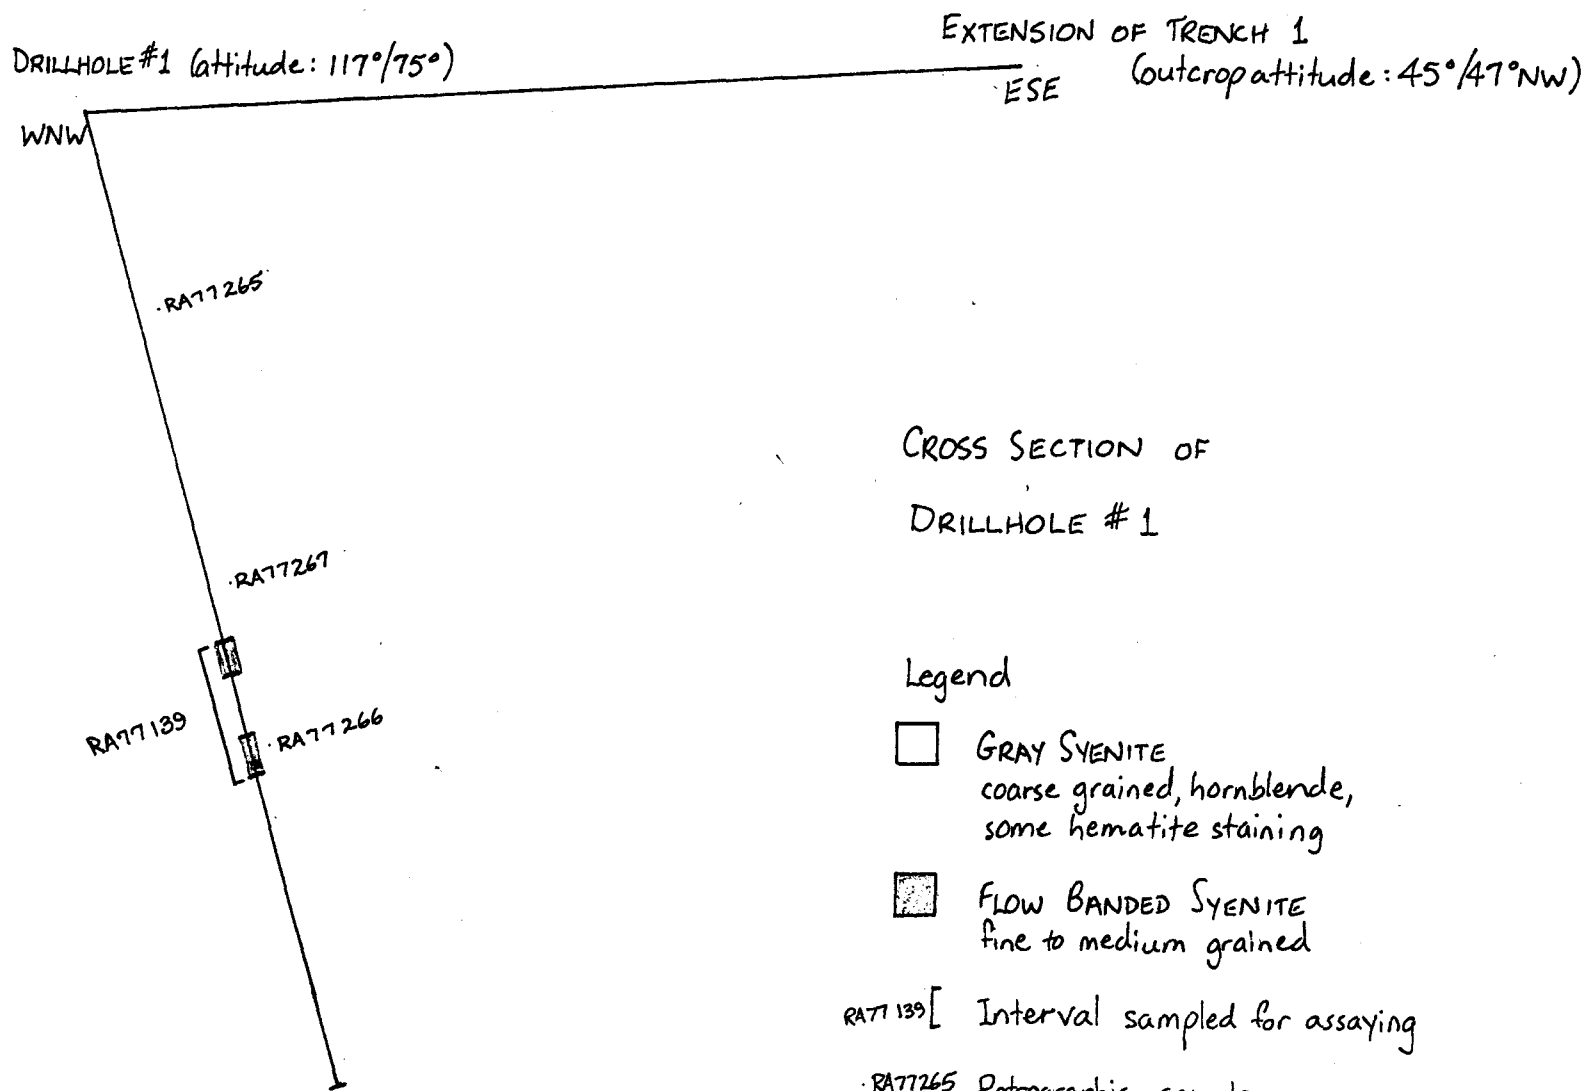 DRILLHOLE #1 (attitude: 117°/75°)
EXTENSION OF TRENCH 1
(outcrop attitude: 45°/47°NW)
WNW
ESE
.RA77265
.RA77267
RA77139
.RA77266
CROSS SECTION OF
DRILLHOLE #1
Legend
GRAY SYENITE
coarse grained, hornblende,
some hematite staining
FLOW BANDED SYENITE
fine to medium grained
RA77139[ Interval sampled for assaying
.RA77265